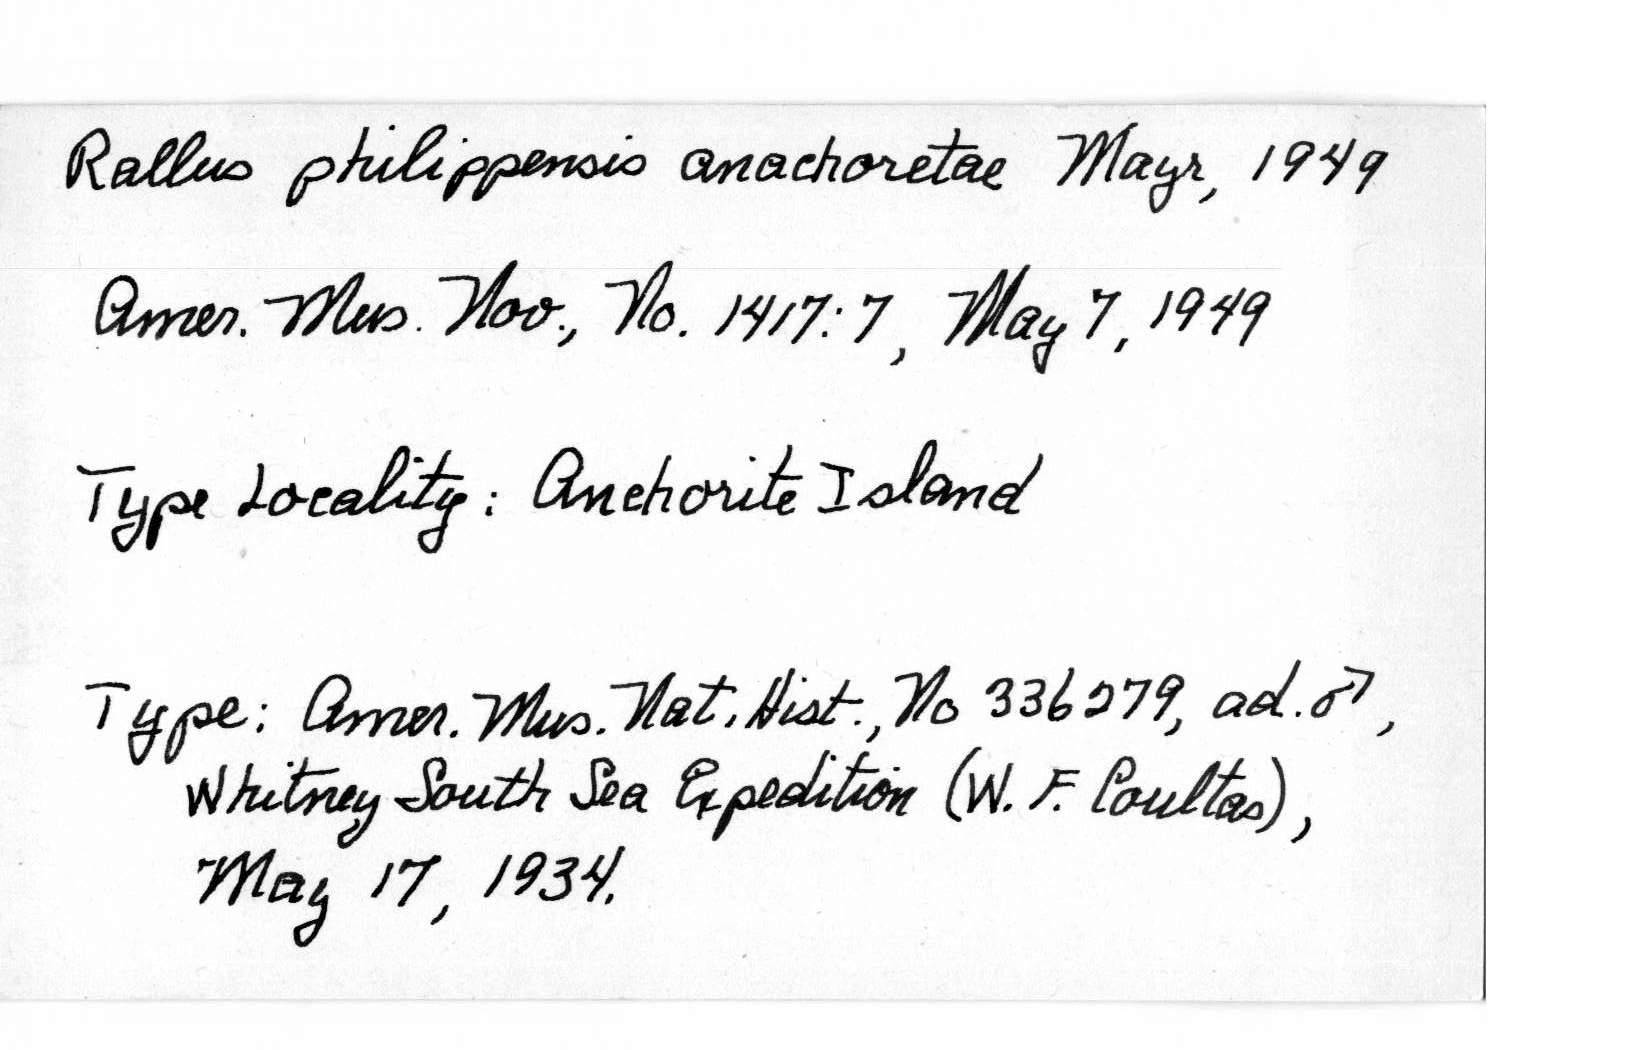 Rallus philippensis anachoretae Mayr, 1949
Amer. Mus. Nov., No. 1417:7, May 7, 1949
Type Locality: Anchorite Island
Type: Amer. Mus. Nat. Hist., No 336279, ad. ♂,
Whitney South Sea Expedition (W. F. Coultas),
May 17, 1934.